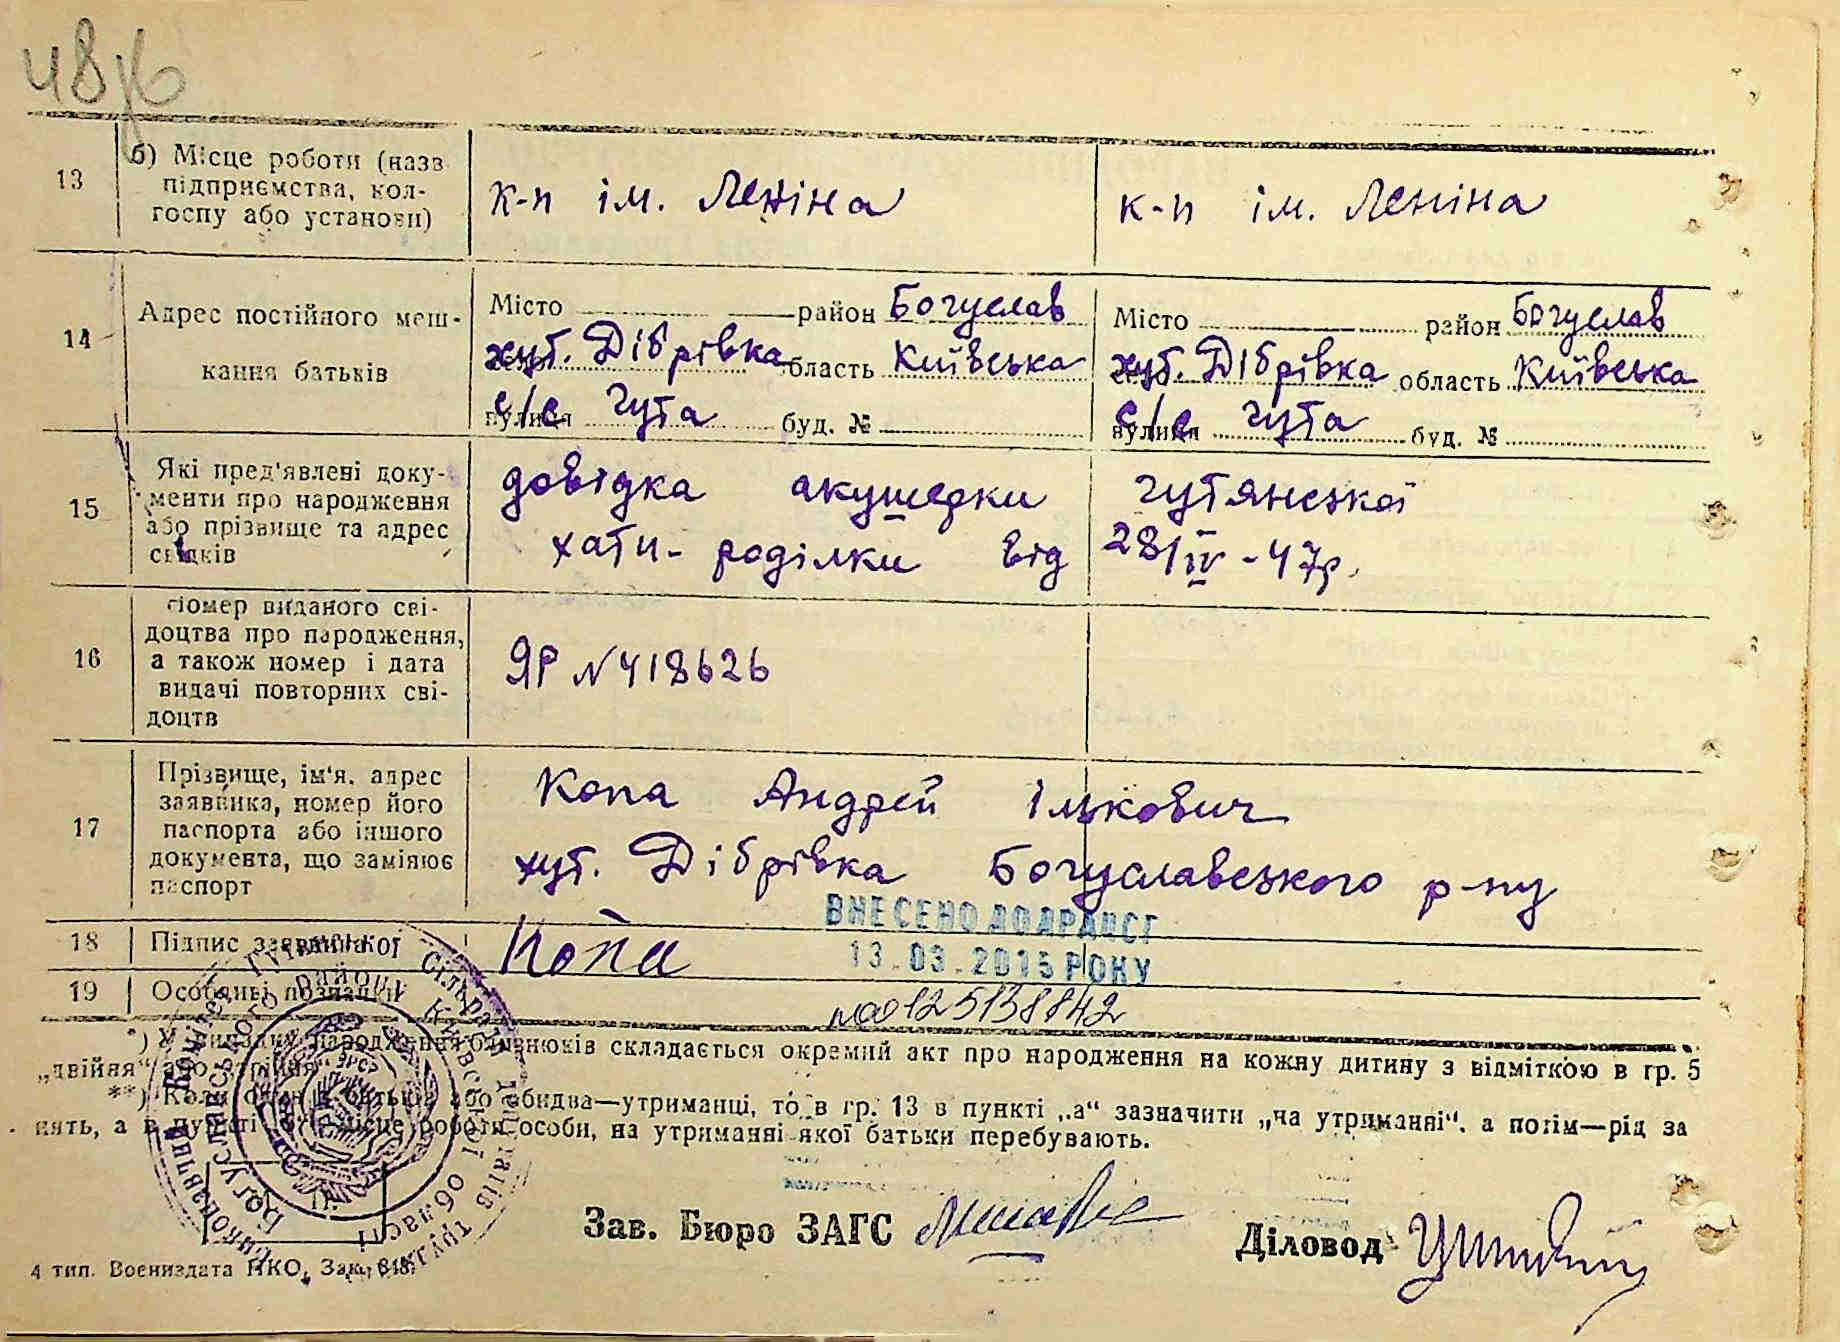 48
13
б) Місце роботи (назв
підприємства, кол-
госпу або установи)
к-п ім. Леніна
к-п ім. Леніна
14
Адрес постійного меш-
кання батьків
Місто район Богуслав
хут. Дібрівка область Київська
с/с Гута буд. №
Місто район Богуслав
хут. Дібрівка область Київська
с/с Гута буд. №
15
Які пред'явлені доку-
менти про народження
або прізвище та адрес
свідків
довідка акушерки Гутянської
хати-роділки від 28/IV-47р.
16
Номер виданого сві-
доцтва про народження,
а також номер і дата
видачі повторних сві-
доцтв
ЯР N418626
17
Прізвище, ім'я, адрес
заявника, номер його
паспорта або іншого
документа, що заміяює
паспорт
Копа Андрей Ількович
хут. Дібрівка Богуславського р-ну
18
Підпис заявника
Копа
ВНЕСЕНО ДО ДРАЦСГ
13.03.2015 РОКУ
19
Особливі познаки
00125138842
*) У випадку народження близнюків складається окремий акт про народження на кожну дитину з відміткою в гр. 5
„двійня“ або „трійня“
**) Коли один з батьків або обидва—утриманці, то в гр. 13 в пункті „а“ зазначити „на утриманні“, а потім—рід за
нять, а в пункті „б“ місце роботи особи, на утриманні якої батьки перебувають.
Зав. Бюро ЗАГС
Діловод
4 тип. Воениздата НКО, Зак. 648.